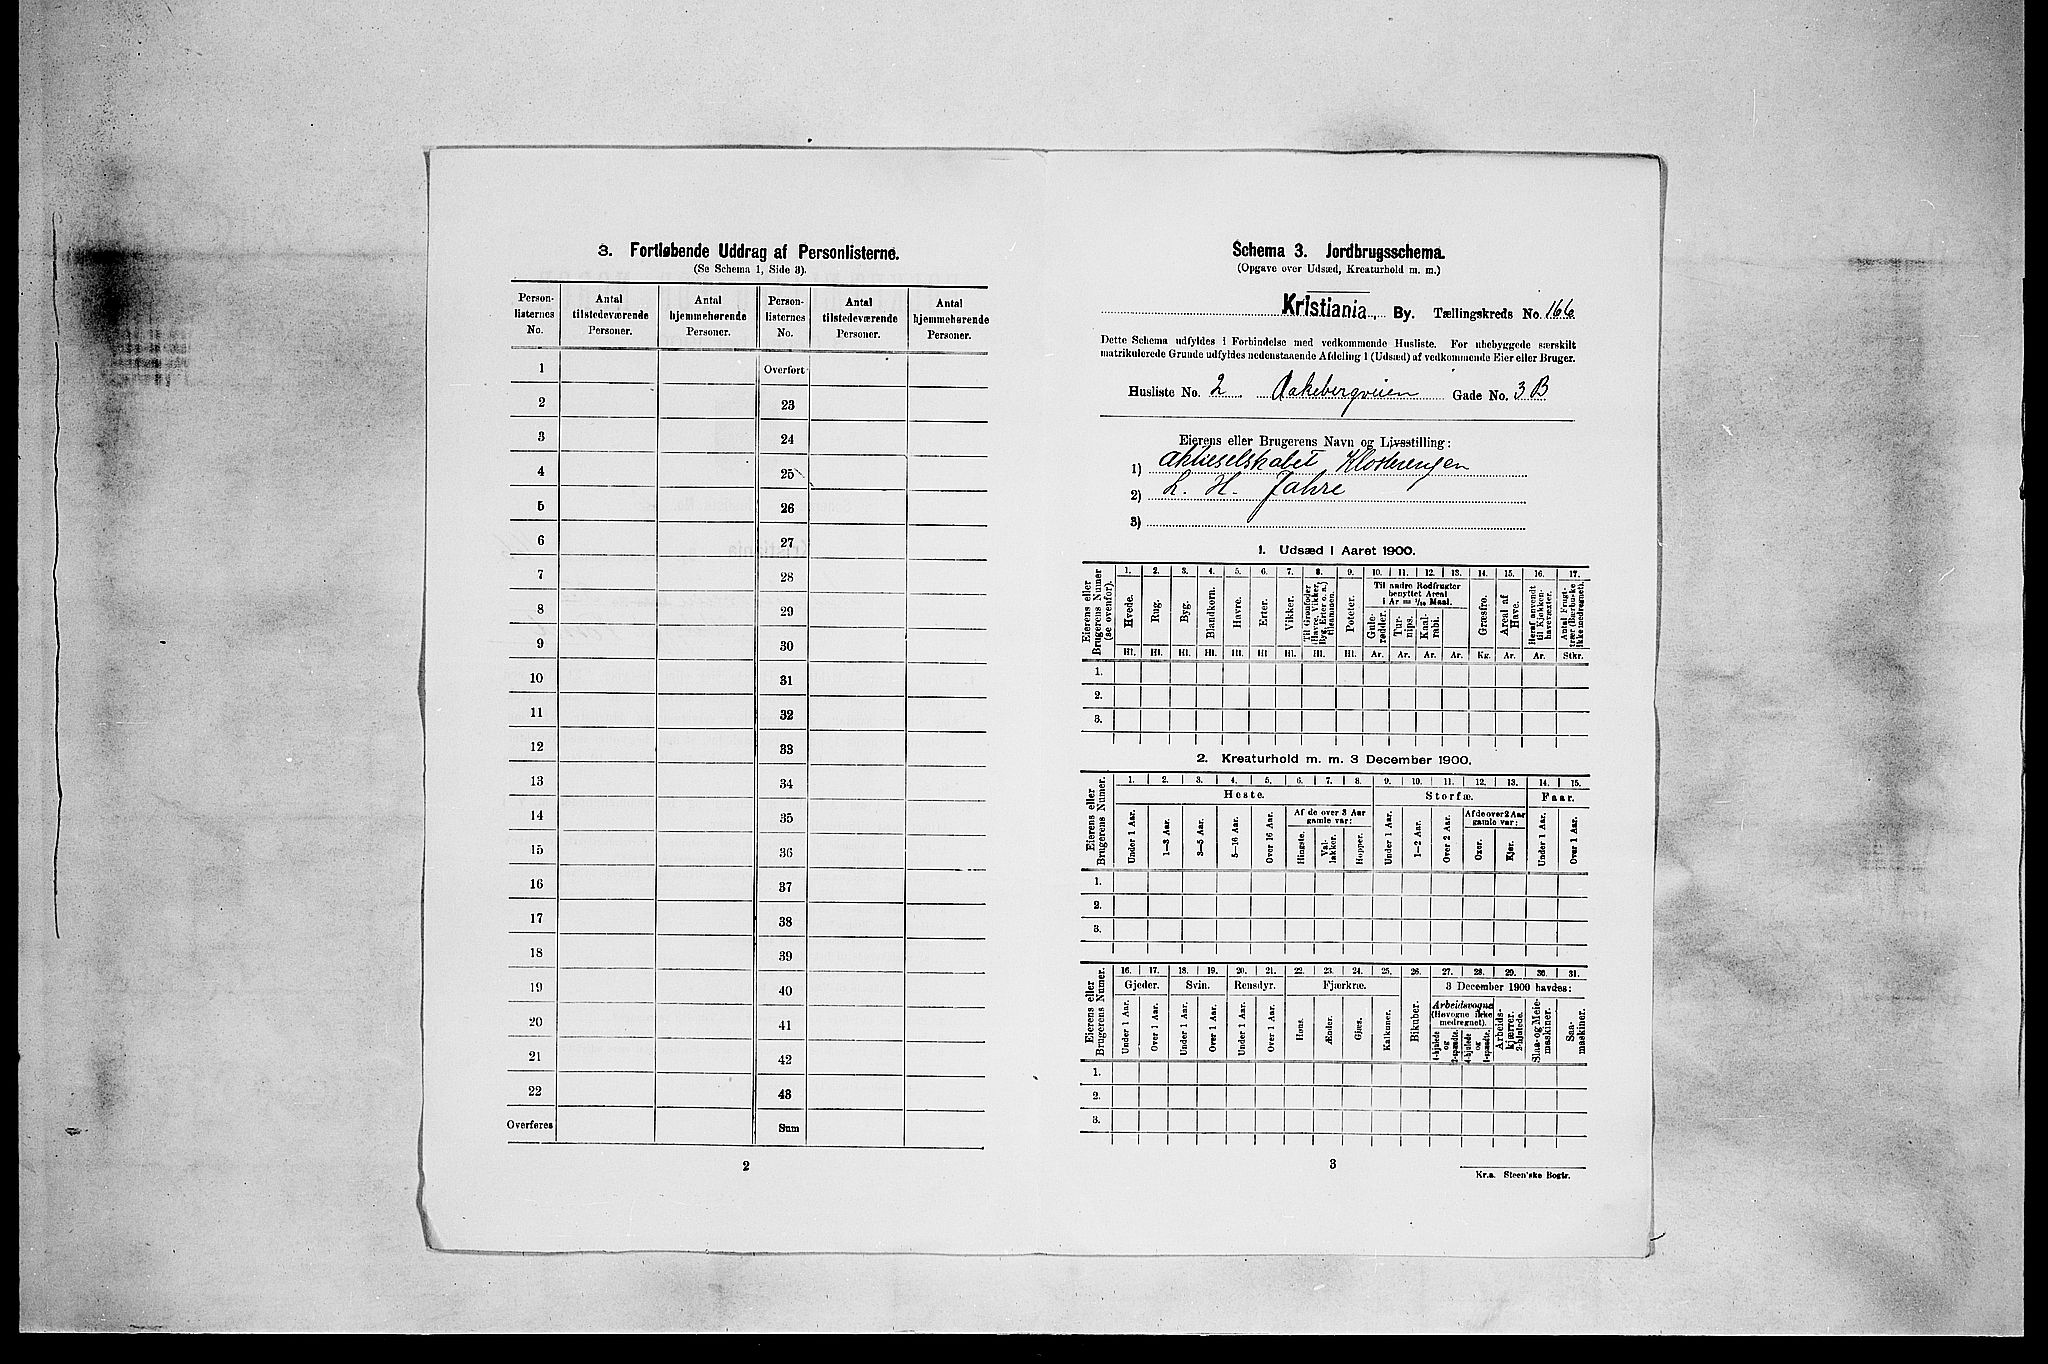 3. Fortløbende Uddrag af Personlisterne.
(Se Schema 1, Side 3).
Person-listernes No. | Antal tilstedeværende Personer. | Antal hjemmehørende Personer. | Person-listernes No. | Antal tilstedeværende Personer. | Antal hjemmehørende Personer.
1 | Overført
2 | 23
3 | 24
4 | 25
5 | 26
6 | 27
7 | 28
8 | 29
9 | 30
10 | 31
11 | 32
12 | 33
13 | 34
14 | 35
15 | 36
16 | 37
17 | 38
18 | 39
19 | 40
20 | 41
21 | 42
22 | 43
Overføres | Sum
2
Schema 3. Jordbrugsschema.
(Opgave over Udsæd, Kreaturhold m. m.)
Kristiania By. Tællingskreds No. 166.
Dette Schema udfyldes i Forbindelse med vedkommende Husliste. For ubebyggede særskilt
matrikulerede Grunde udfyldes nedenstaaende Afdeling 1 (Udsæd) af vedkommende Eier eller Bruger.
Husliste No. 2. Aakebergveien Gade No. 3 B
Eierens eller Brugerens Navn og Livsstilling:
1) Aktieselskabet Klosterengen
2) L. H. Jahre
3)
1. Udsæd i Aaret 1900.
1. 2. 3. 4. 5. 6. 7. 8. 9. 10. 11. 12. 13. 14. 15. 16. 17.
Eierens eller Brugerens Numer (se ovenfor).
Hvede. Rug. Byg. Blandkorn. Havre. Erter. Vikker. Til Grønfoder (Havre, Vikker, Byg, Erter o. a.) tilsammen. Poteter.
Til andre Rodfrugter benyttet Areal 1 Ar = 1/10 Maal.
Gule-rødder. Tur-nips. Kaal-rabi. Græsfrø. Areal af Have. Heraf anvendt til Kjøkken-havevæxter. Antal Frugt-trær (Bærbuske ikke medregnet).
Hl. Hl. Hl. Hl. Hl. Hl. Hl. Hl. Hl. Ar. Ar. Ar. Ar. Kg. Ar. Ar. Stkr.
1.
2.
3.
2. Kreaturhold m. m. 3 December 1900.
1. 2. 3. 4. 5. 6. 7. 8. 9. 10. 11. 12. 13. 14. 15.
Eierens eller Brugerens Numer.
Heste. Storfæ. Faar.
Under 1 Aar. 1—3 Aar. 3—5 Aar. 5—16 Aar. Over 16 Aar. Af de over 3 Aar gamle var: Hingste. Val-lakker. Hopper.
Under 1 Aar. 1—2 Aar. Over 2 Aar. Af de over 2 Aar gamle var: Oxer. Kjør. Under 1 Aar. Over 1 Aar.
1.
2.
3.
16. 17. 18. 19. 20. 21. 22. 23. 24. 25. 26. 27. 28. 29. 30. 31.
Eierens eller Brugerens Numer.
Gjeder. Svin. Rensdyr. Fjærkræ. 3 December 1900 havdes:
Under 1 Aar. Over 1 Aar. Under 1 Aar. Over 1 Aar. Under 1 Aar. Over 1 Aar. Høns. Ænder. Gjæs. Kalkuner. Bikuber.
Arbeidsvogne (Høvogne ikke medregnet). 4-hjulede og 2-spændte. 4-hjulede og 1-spændte. Arbeids-kjærrer. 2-hjulede. Slaa- og Meie-maskiner. Saa-maskiner.
1.
2.
3.
3
Kr.a. Steen'ske Bogtr.